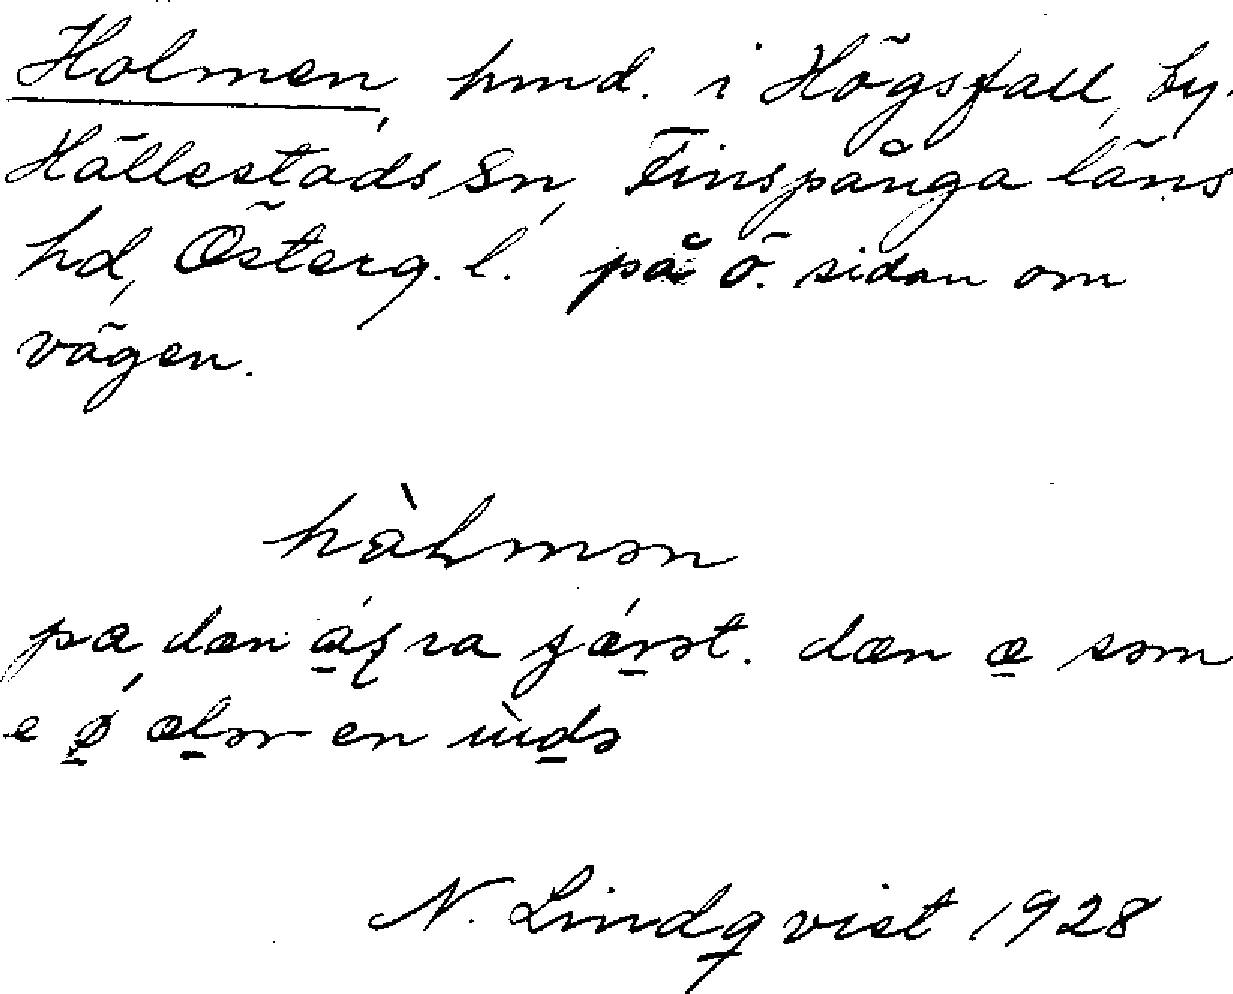 Holmen, hmd. i Högsfall, by.
Hällestads Sn, Finspånga läns
hd, Österg. l. på ö. sidan om
vägen.
hàlmən
pa dæn ǽra jǽrət. dæn æ səm
e ǿ ælər en ùdə
N. Lindqvist 1928